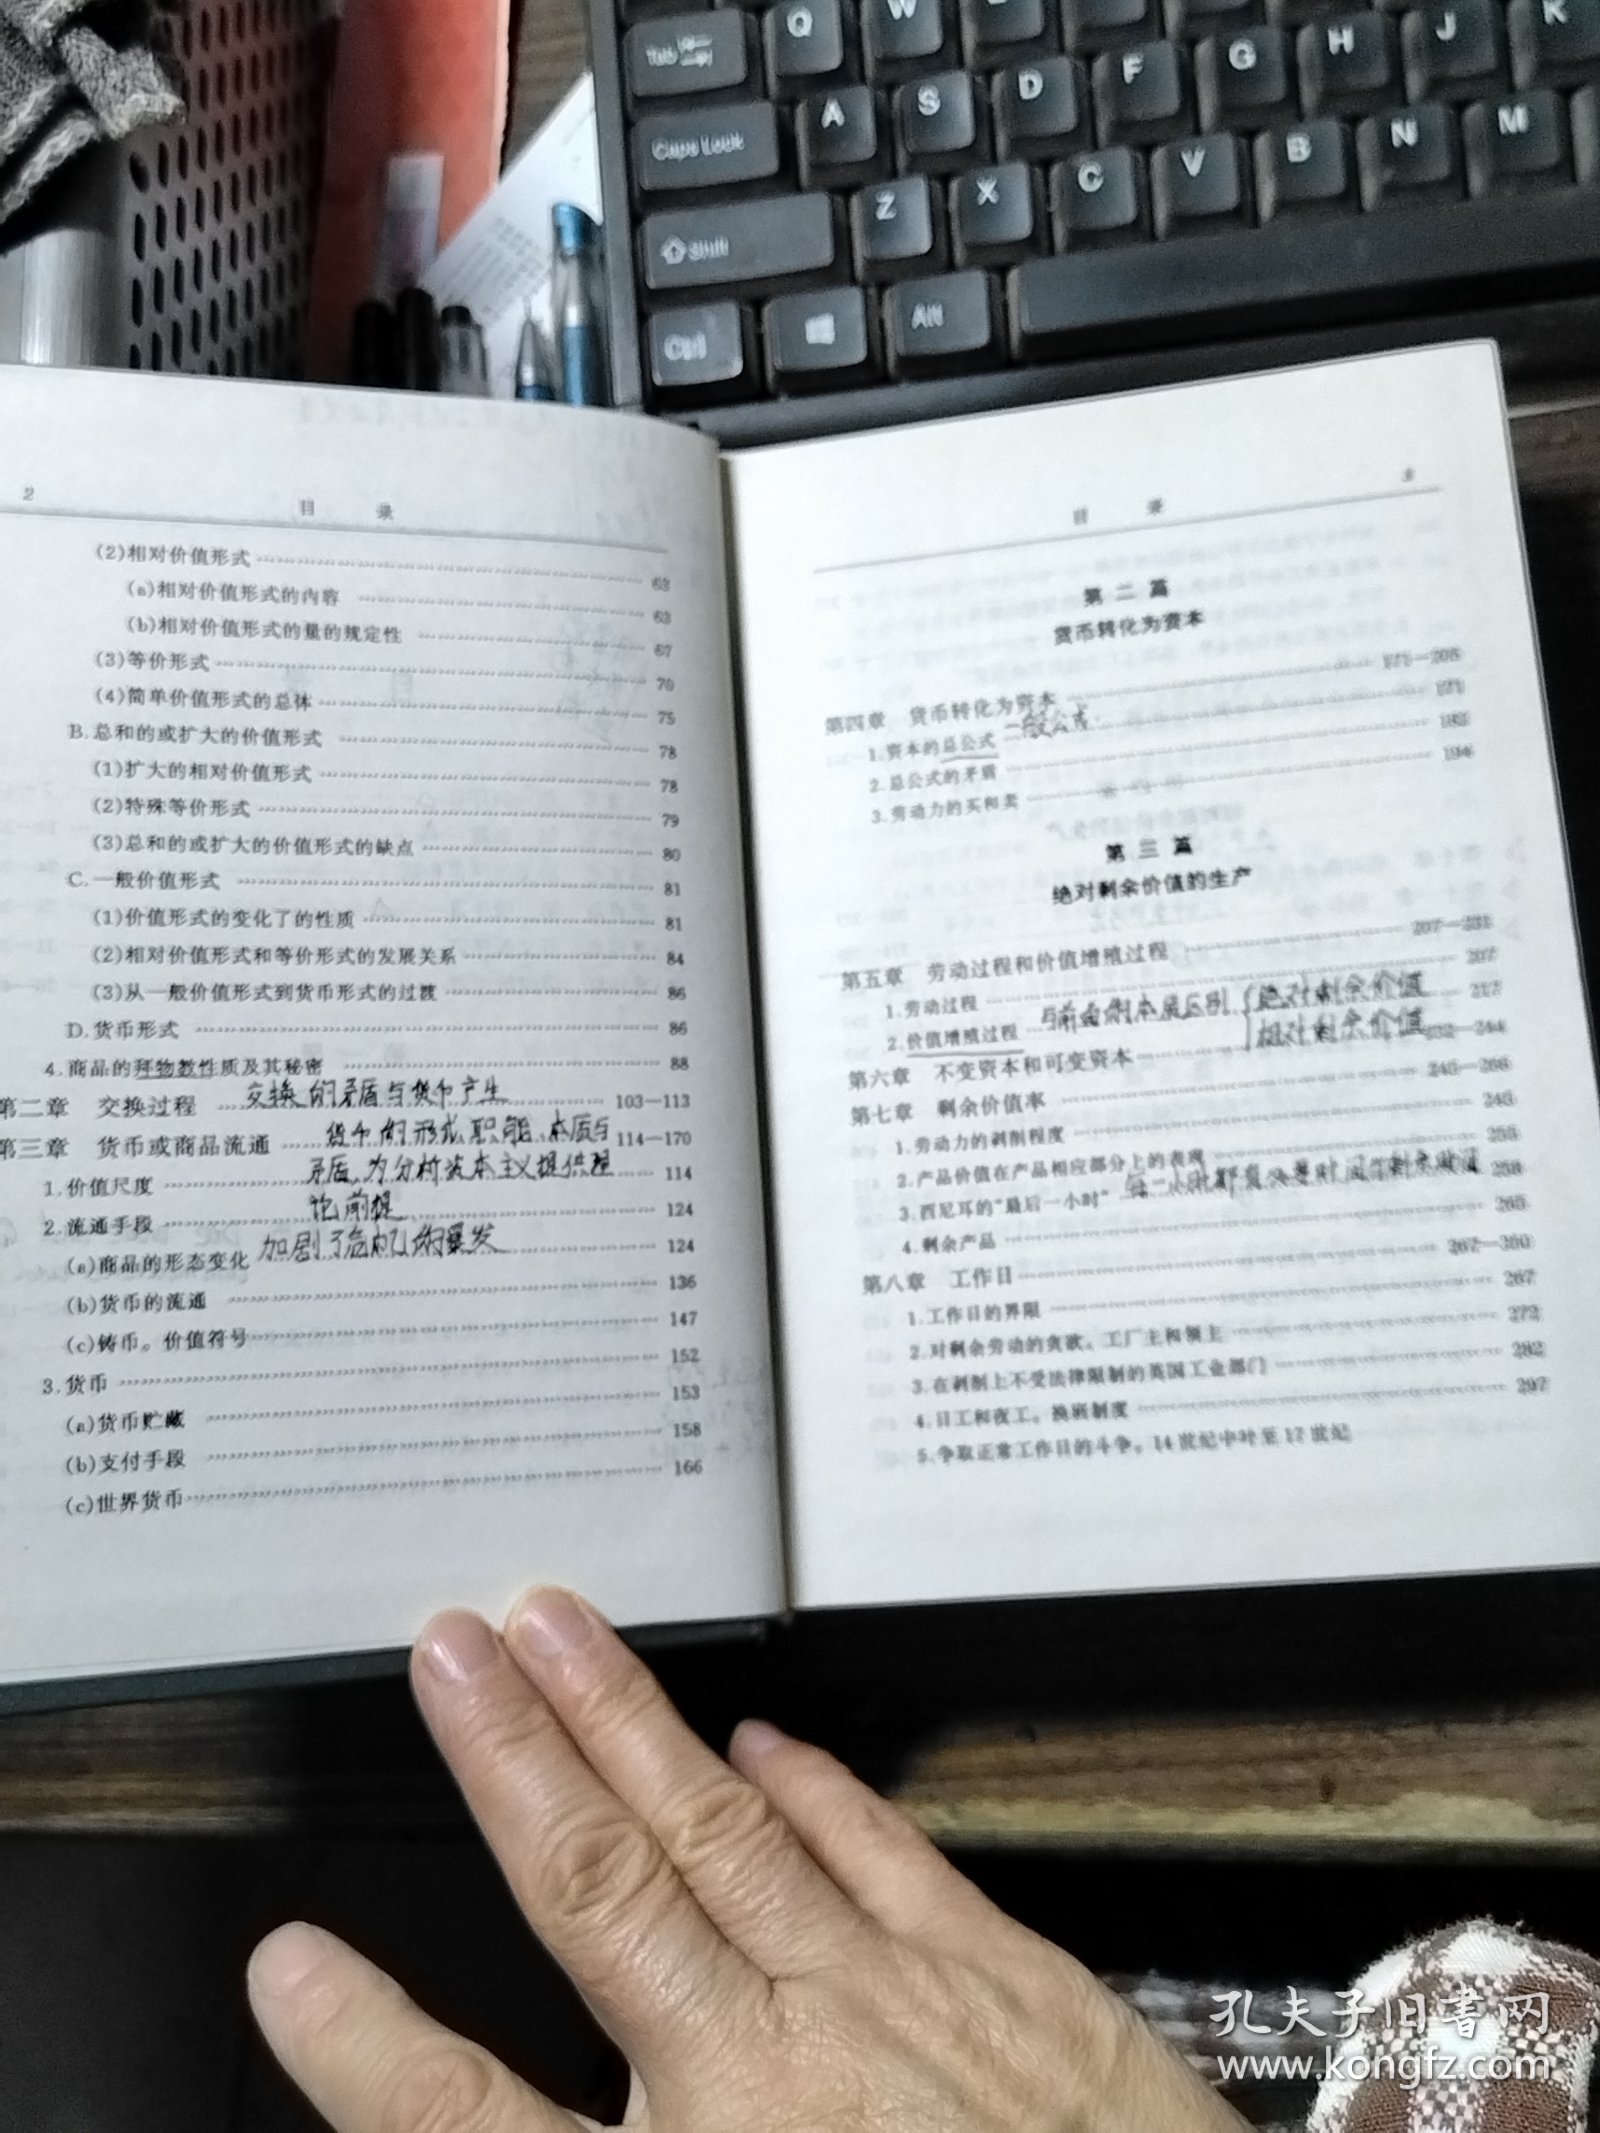 Tab
Q
W
Caps Lock
A
S
D
F
G
H
J
K
Shift
Z
X
C
V
B
N
M
Ctrl
Alt
2
目 录
(2)相对价值形式 62
(a)相对价值形式的内容 63
(b)相对价值形式的量的规定性 67
(3)等价形式 70
(4)简单价值形式的总体 75
B.总和的或扩大的价值形式 78
(1)扩大的相对价值形式 78
(2)特殊等价形式 79
(3)总和的或扩大的价值形式的缺点 80
C.一般价值形式 81
(1)价值形式的变化了的性质 81
(2)相对价值形式和等价形式的发展关系 84
(3)从一般价值形式到货币形式的过渡 86
D.货币形式 86
4.商品的拜物教性质及其秘密 88
第二章 交换过程 交换的矛盾与货币产生 103—113
第三章 货币或商品流通 货币的形式、职能、本质与 114—170
矛盾,为分析资本主义提供理
1.价值尺度 114
论前提
2.流通手段 124
(a)商品的形态变化 加剧了危机的爆发 124
(b)货币的流通 136
(c)铸币。价值符号 147
3.货币 152
(a)货币贮藏 153
(b)支付手段 158
(c)世界货币 166
目 录 3
第二篇
货币转化为资本
第四章 货币转化为资本 171—205
1.资本的总公式 一般公式 171
2.总公式的矛盾
3.劳动力的买和卖 194
第三篇
绝对剩余价值的生产
第五章 劳动过程和价值增殖过程 207—231
1.劳动过程 207
2.价值增殖过程 与前会的本质区别 绝对剩余价值 217
相对剩余价值
第六章 不变资本和可变资本 232—244
第七章 剩余价值率
1.劳动力的剥削程度
2.产品价值在产品相应部分上的表现
3.西尼耳的“最后一小时” 每一小时都
4.剩余产品
第八章 工作日 267—350
1.工作日的界限 267
2.对剩余劳动的贪欲。工厂主和领主 272
3.在剥削上不受法律限制的英国工业部门 282
4.日工和夜工。换班制度 297
5.争取正常工作日的斗争。14世纪中叶至17世纪
孔夫子旧书网
www.kongfz.com